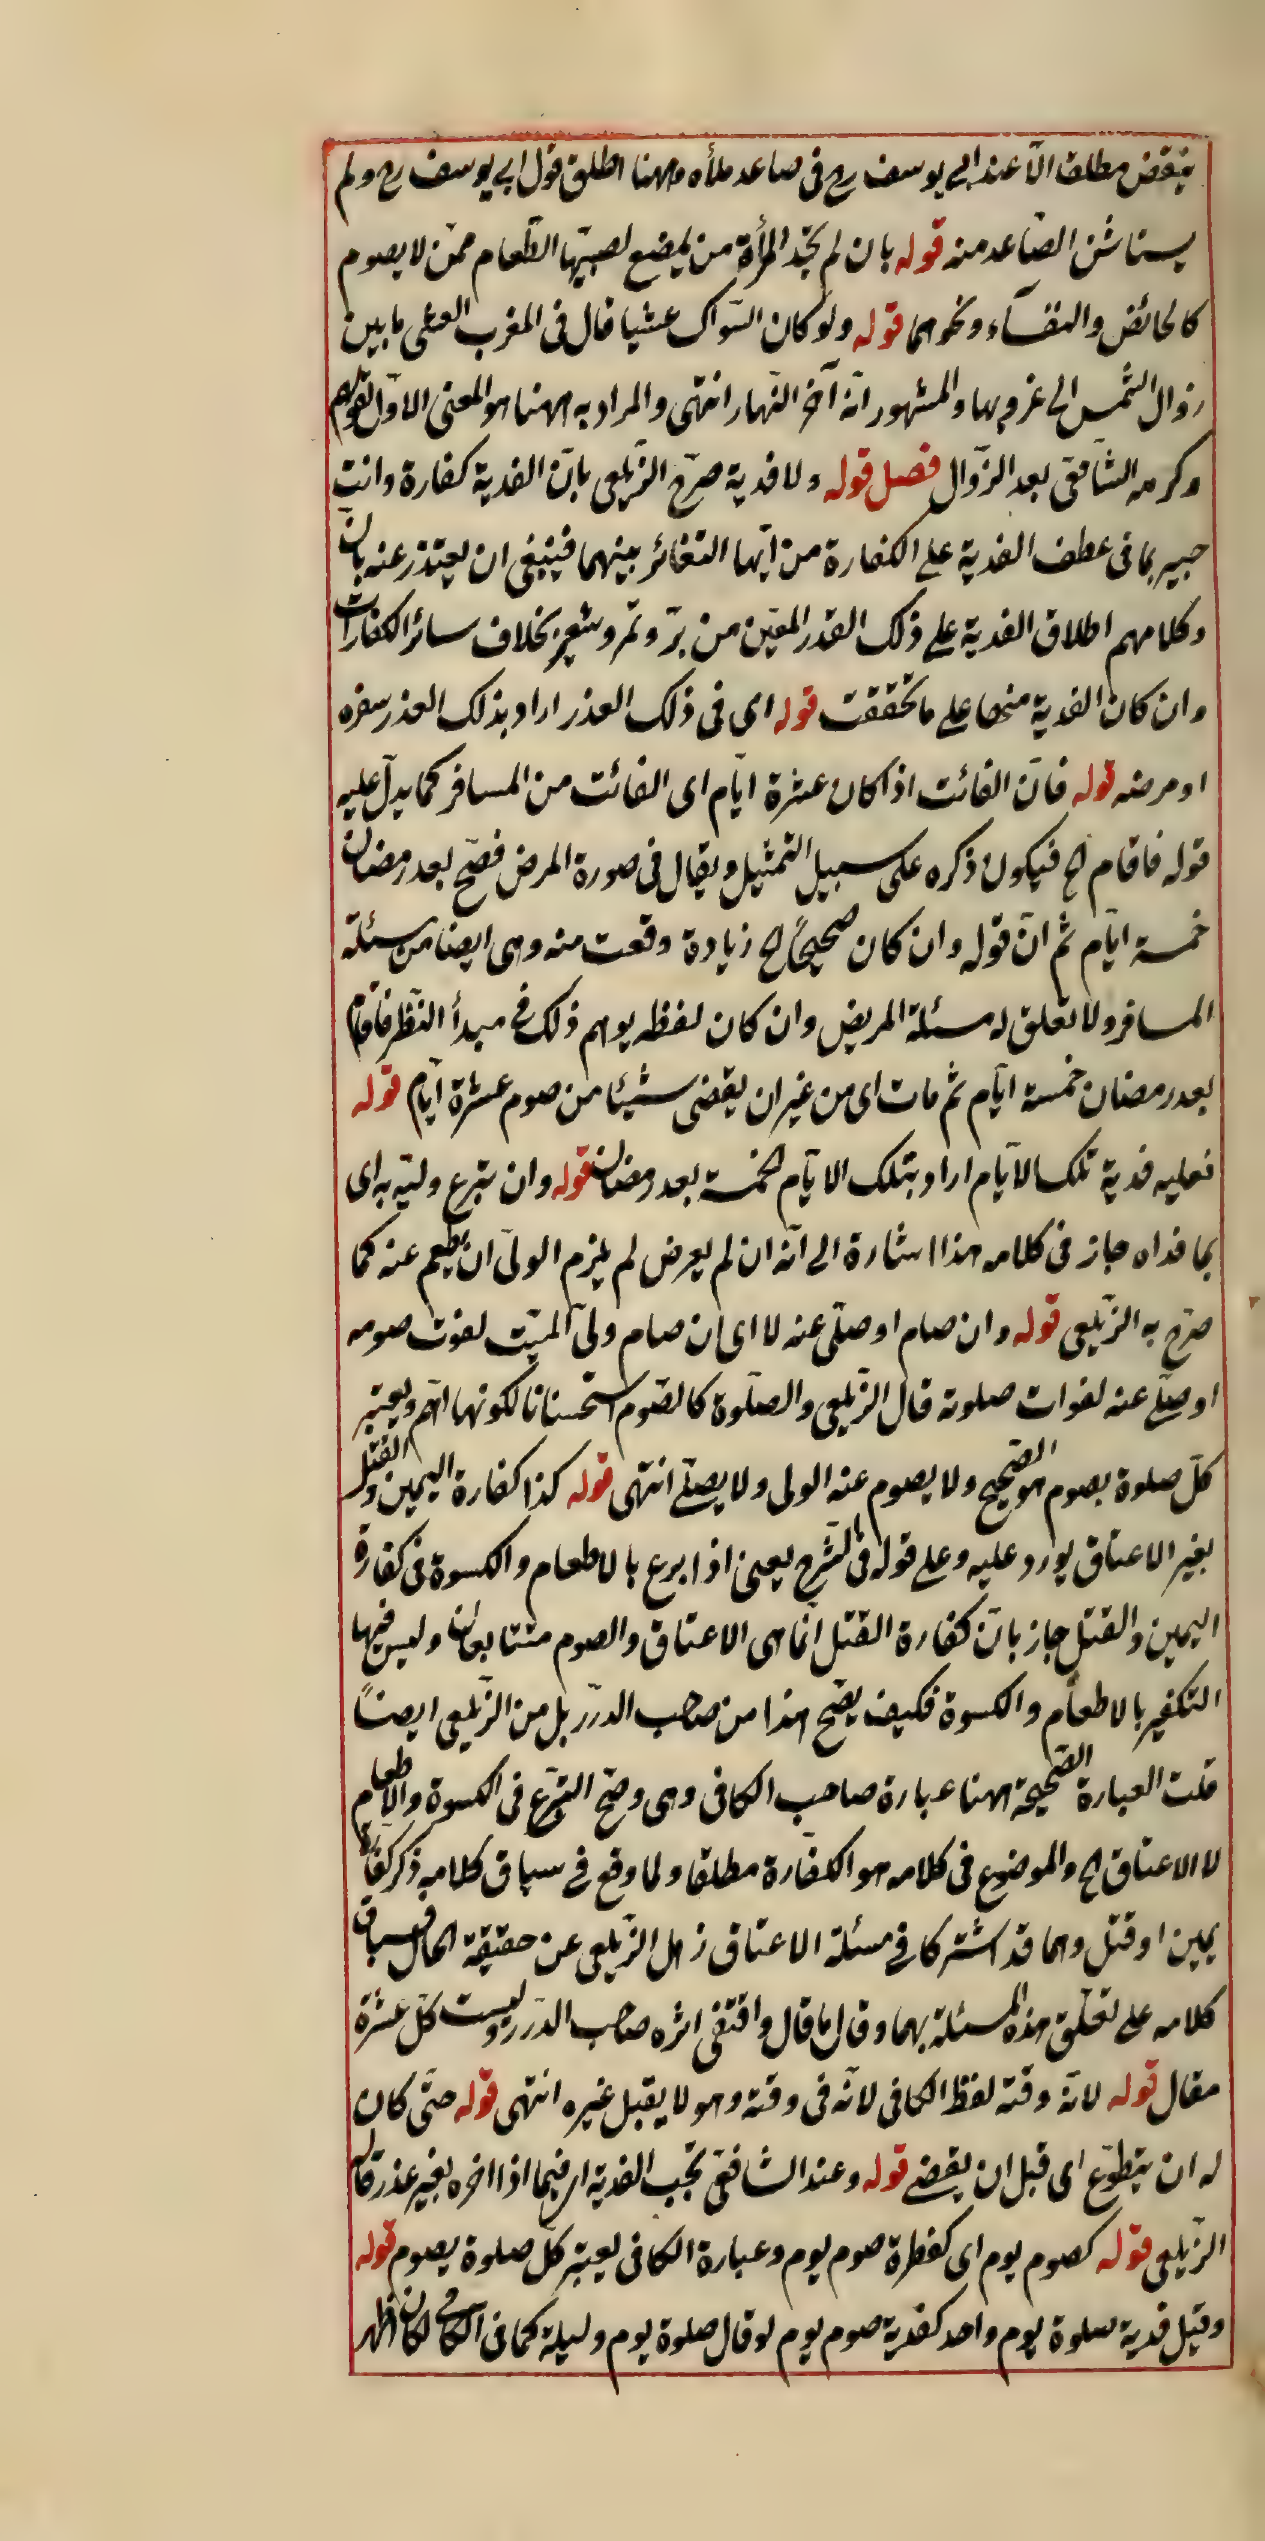 ينقض مطلقا الا عند ابي يوسف رح في صاعد ملأه وههنا اطلق قول ابي يوسف رح ولم
يستثن الصاعد منه قوله بان لم تجد المرأة من يمضغ لصبيها الطعام ممن لا يصوم
كالحائض والنفسآء ونحوهما قوله ولو كان السواك عشيا قال في المغرب العشي ما بين
زوال الشمس الى غروبها والمشهور انه آخر النهار انتهى والمراد به ههنا هو المعنى الاول لقولهم
وكرهه الشافعي بعد الزوال فصل قوله ولا فدية صرح الزيلعي بان الفدية كفارة وانت
خبير بما في عطف الفدية على الكفارة من ايهام التغائر بينهما فينبغي ان يعتذر عنه بان
وكلامهم اطلاق الفدية على ذلك القدر المعين من بر وتمر وشعير بخلاف سائر الكفارات
وان كان الفدية منها على ما تحققت قوله اى في ذلك العذر اراد بذلك العذر سفره
او مرضه قوله فان الفائت اذا كان عشرة ايام اى الفائت من المسافر كما يدل عليه
قوله فاقام الخ فيكون ذكره على سبيل التمثيل ويقال في صورة المرض فصح بعد رمضان
خمسة ايام ثم ان قوله وان كان صحيحا الخ زيادة وقعت منه وهي ايضا من مسئلة
المسافر ولا تعلق له بمسئلة المريض وان كان لفظه يوهم ذلك في مبدأ النظر فاقام
بعد رمضان خمسة ايام ثم مات اى من غير ان يقضي شيئا من صوم عشرة ايام قوله
فعليه فدية تلك الايام اراد بتلك الايام الخمسة بعد رمضان قوله وان تبرع وليه به اى
بما فداه جاز في كلامه هذا اشارة الى انه ان لم يعرض لم يلزم الولي ان يطعم عنه كما
صرح به الزيلعي قوله وان صام او صلى عنه لا اى ان صام ولي الميت لفوت صومه
او صلى عنه لفوات صلوته قال الزيلعي والصلوة كالصوم استحسانا لكونها اهم ويعتبر
كل صلوة بصوم هو الصحيح ولا يصوم عنه الولي ولا يصلي انتهى قوله كذا كفارة اليمين والقتل
بغير الاعتاق يورد عليه وعلى قوله في الشرح يعني اذا تبرع بالاطعام والكسوة في كفارة
اليمين والقتل جاز بان كفارة القتل انما هي الاعتاق والصوم متتابعان وليس فيها
التكفير بالاطعام والكسوة فكيف يصح هذا من صاحب الدرر بل من الزيلعي ايضاً
قلت العبارة الصحيحة ههنا عبارة صاحب الكافي وهي وصح التبرع في الكسوة والاطعام
لا الاعتاق الخ والموضوع في كلامه هو الكفارة مطلقا ولما وقع في سياق كلامه ذكر كفارة
يمين او قتل وهما قد اشتركا في مسئلة الاعتاق زهل الزيلعي عن حقيقة الحال فساق
كلامه على تعلق هذه المسئلة بهما وقال ما قال واقتفى اثره صاحب الدرر وليست كل عشرة
مقال قوله لانه وقته لفظ الكافي لانه في وقته وهو لا يقبل غيره انتهى قوله حتى كان
له ان يتطوع اى قبل ان يقضي قوله وعند الشافعي تجب الفدية اى فيما اذا اخره بغير عذر قاله
الزيلعي قوله كصوم يوم اى كفطرة صوم يوم وعبارة الكافي يعتبر كل صلوة بصوم قوله
وقيل فدية صلوة يوم واحد كفدية صوم يوم لو قال صلوة يوم وليلة كما في الكافي لكان اظهر